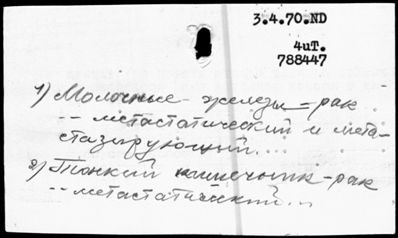 3.4.70.ND
4иТ.
788447
1) Молочные железы - рак
-- метастатический и мета-
стазирующий...
2) Тонкий кишечник - рак
-- метастатический...